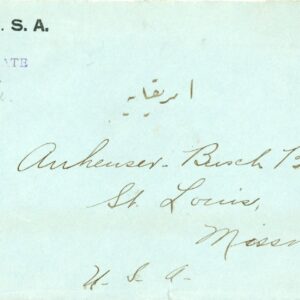 . S. A.
ATE
امريقايه
Anheuser-Busch B
St. Louis,
Misso
U. S. A.